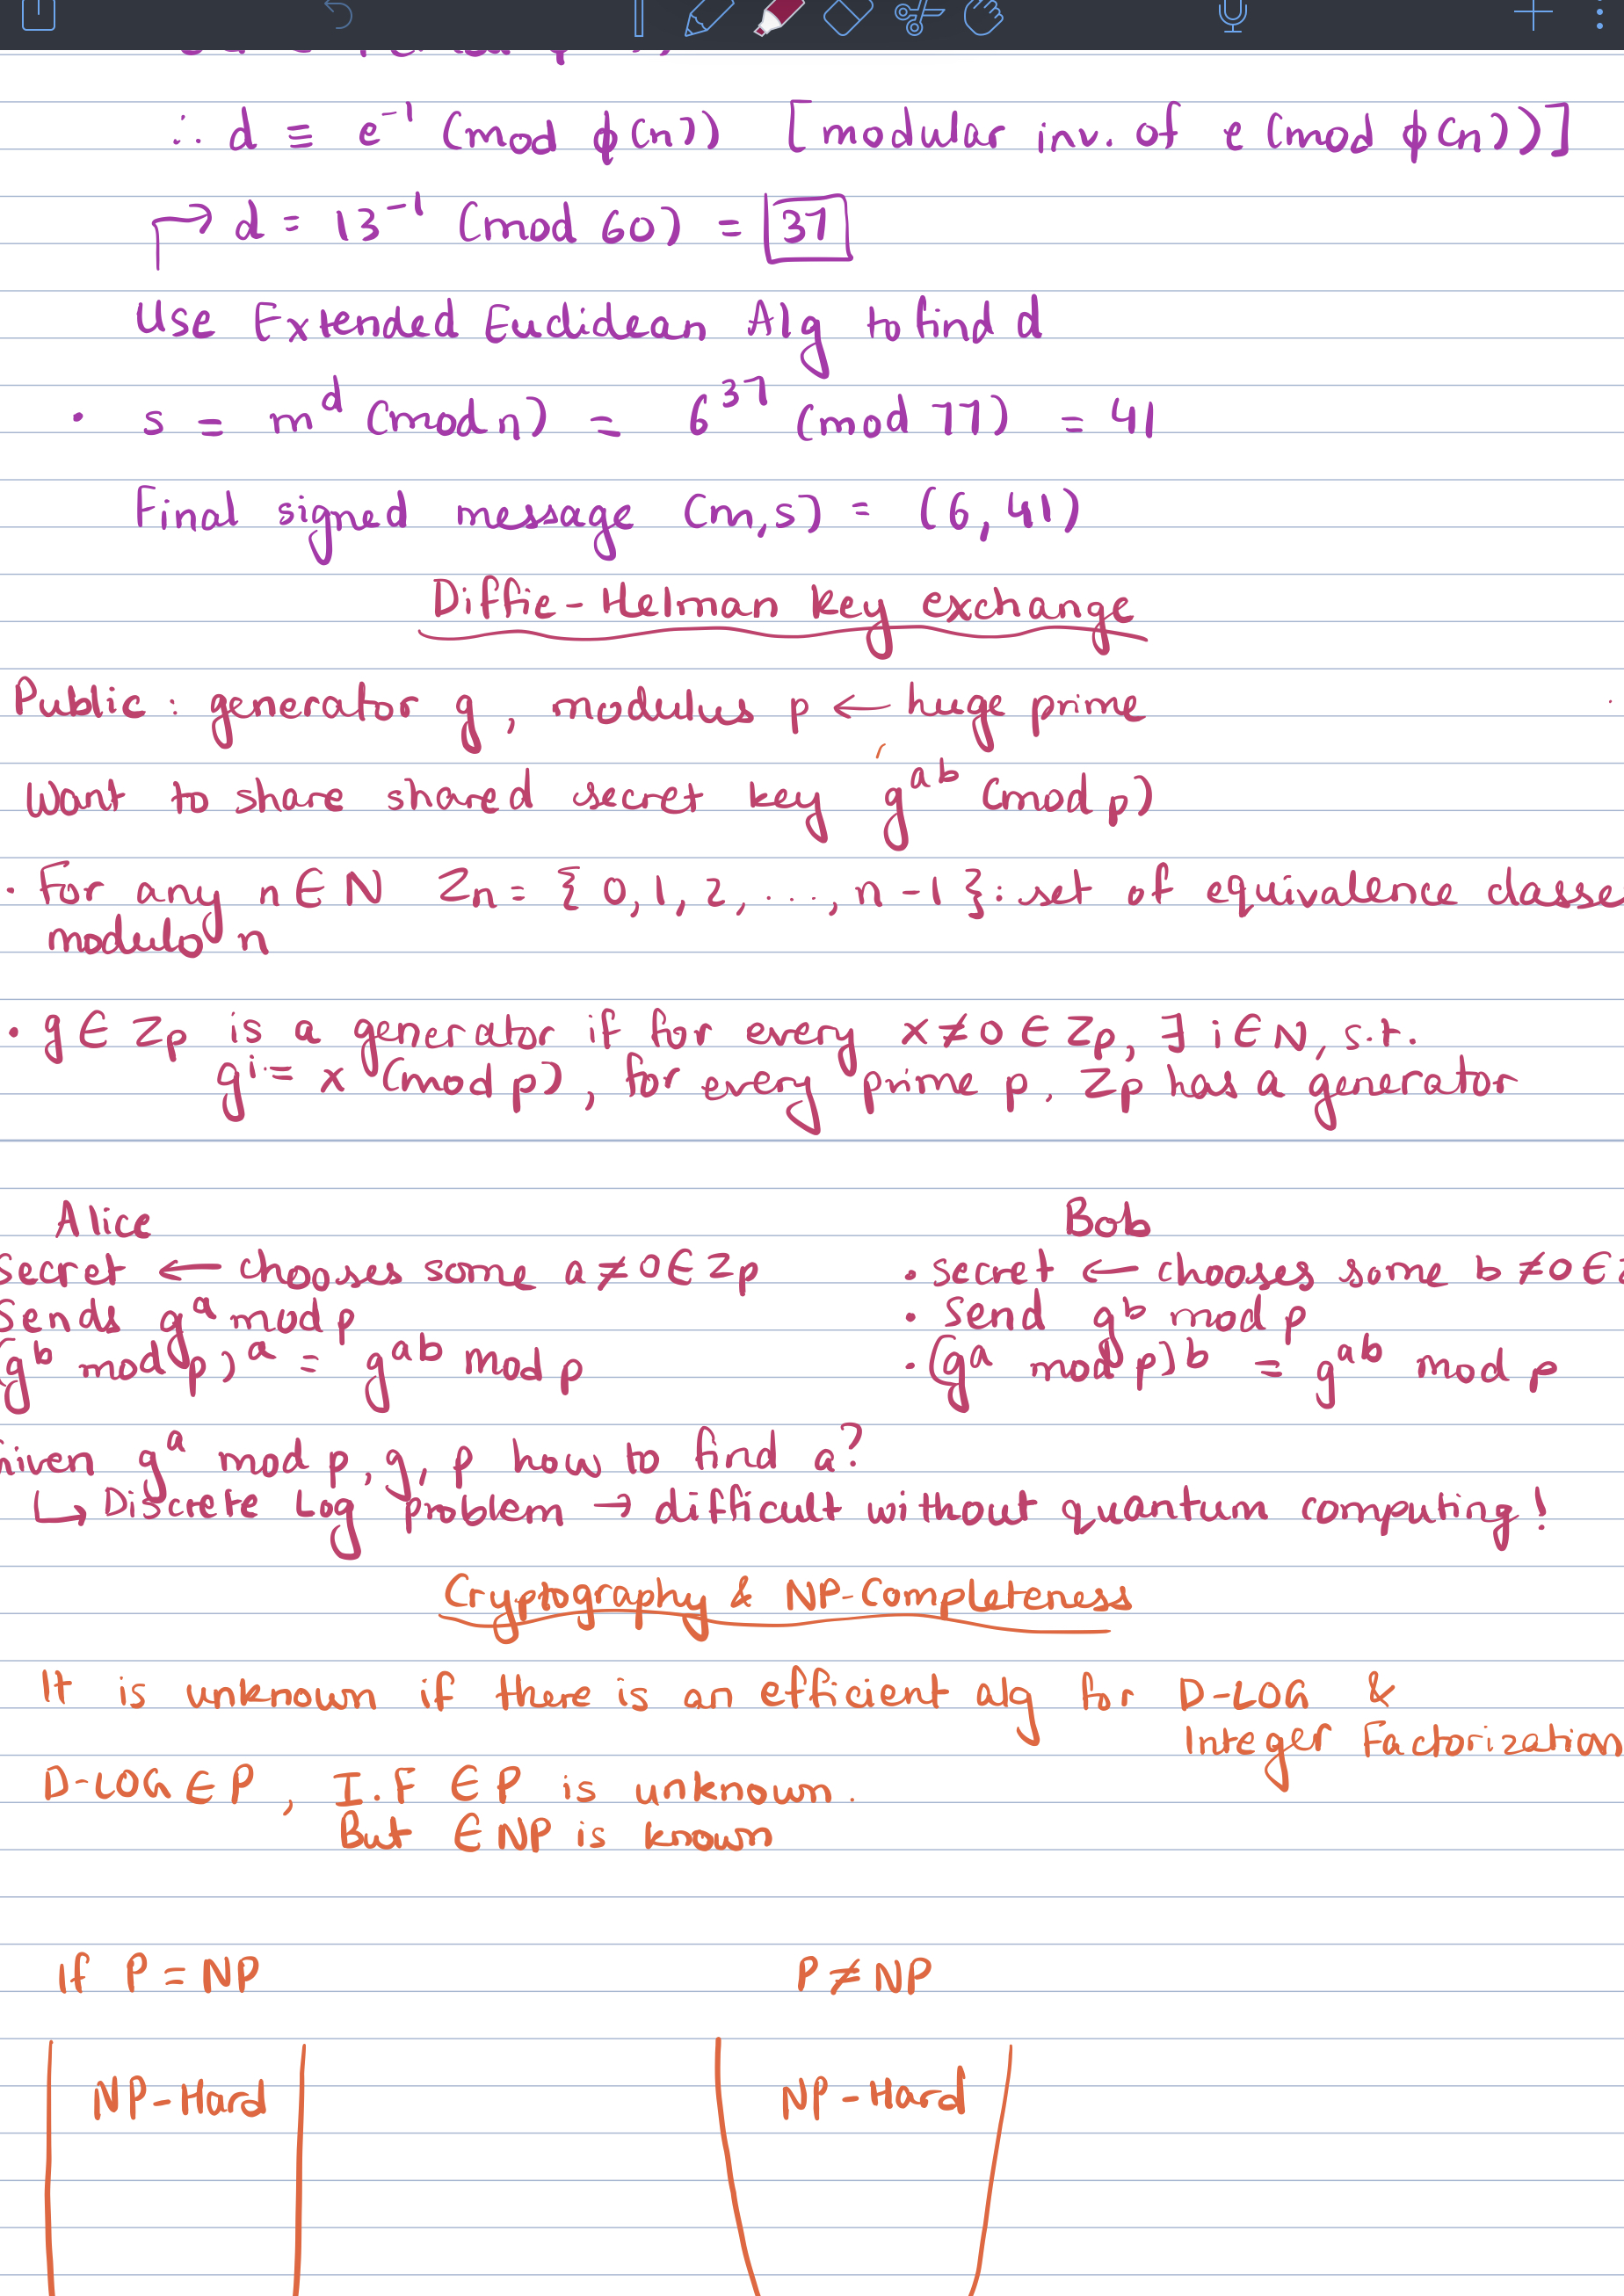 ∴ d ≡ e⁻¹ (mod φ(n)) [modular inv. of e (mod φ(n))]
d = 13⁻¹ (mod 60) = 37
Use Extended Euclidean Alg to find d
• s = m^d (mod n) = 6^37 (mod 77) = 41
Final signed message (m,s) = (6,41)
Diffie-Helman key exchange
Public : generator g, modulus p ← huge prime
Want to share shared secret key g^ab (mod p)
• For any n ∈ N Zn = {0,1,2,...,n-1}: set of equivalence classe
modulo n
• g ∈ Zp is a generator if for every x≠0 ∈ Zp, ∃ i ∈ N, s.t.
g^i = x (mod p), for every prime p, Zp has a generator
Alice
secret ← chooses some a≠0 ∈ Zp
Sends g^a mod p
(g^b mod p)^a = g^ab mod p
Bob
• secret ← chooses some b≠0 ∈ Z
• Send g^b mod p
• (g^a mod p)^b = g^ab mod p
Given g^a mod p, g, p how to find a?
↳ Discrete Log problem → difficult without quantum computing!
Cryptography & NP-Completeness
It is unknown if there is an efficient alg for D-LOG &
Integer Factorization
D-LOG ∈ P, I.F ∈ P is unknown.
But ∈ NP is known
If P = NP
P ≠ NP
NP-Hard
NP-Hard